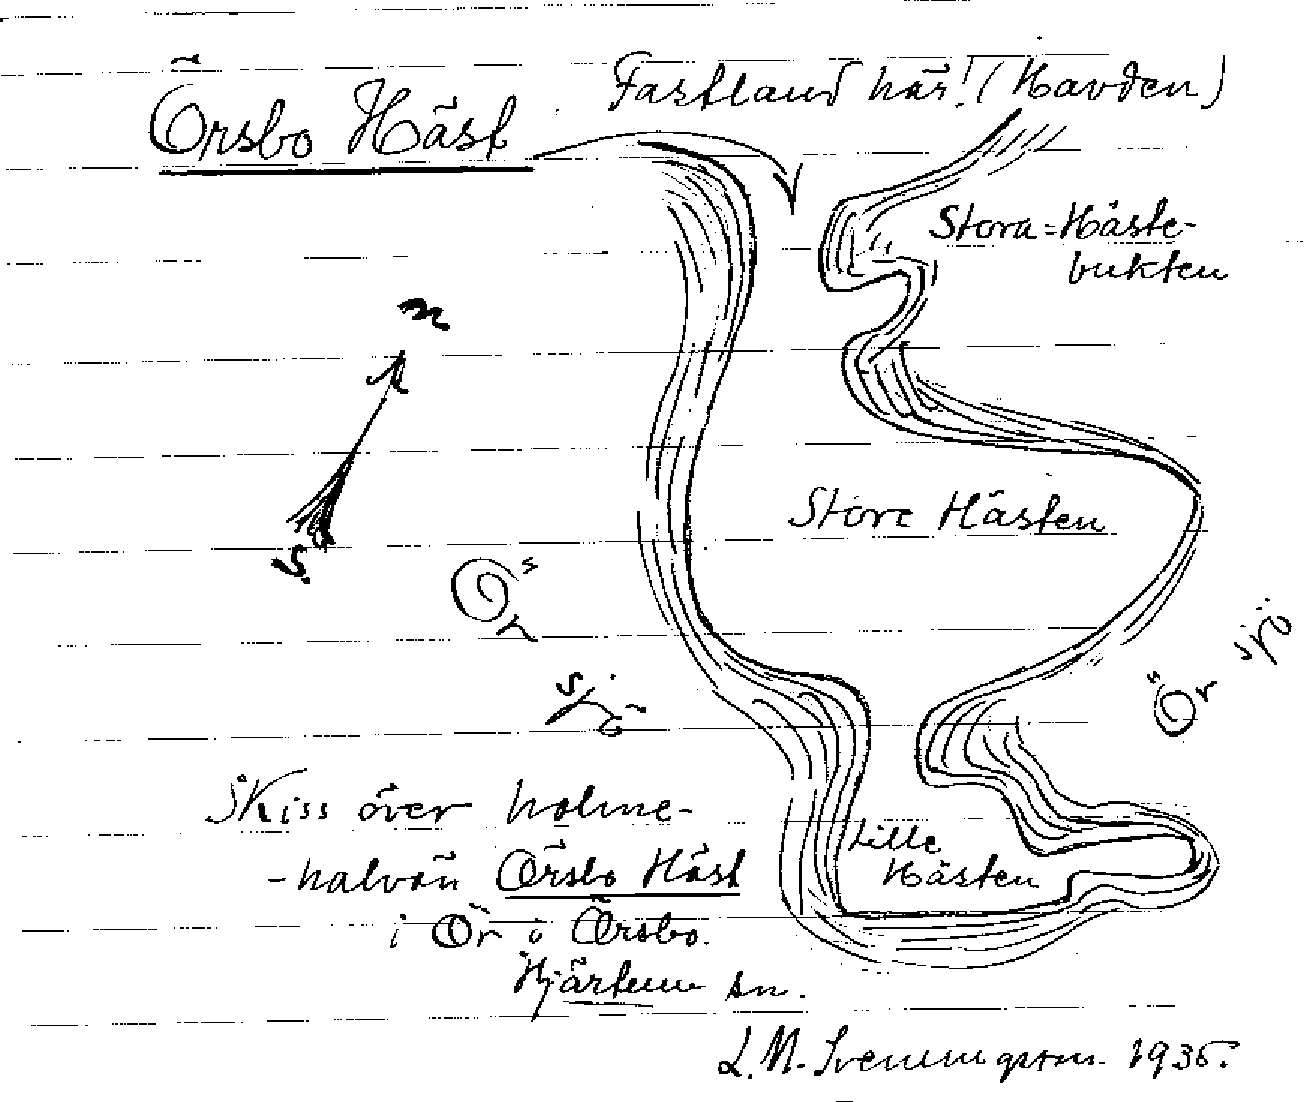 Örsbo Häst
Fastland här! (Havden)
Stora=Häste-
bukten
n
s.
Store Hästen
Ör
sjö
Ör sjö
Skiss över holme-
-halvön Örsbo Häst
i Ör i Örsbo.
Hjärtum sn.
Lille
Hästen
L.M. Svenningson. 1936.